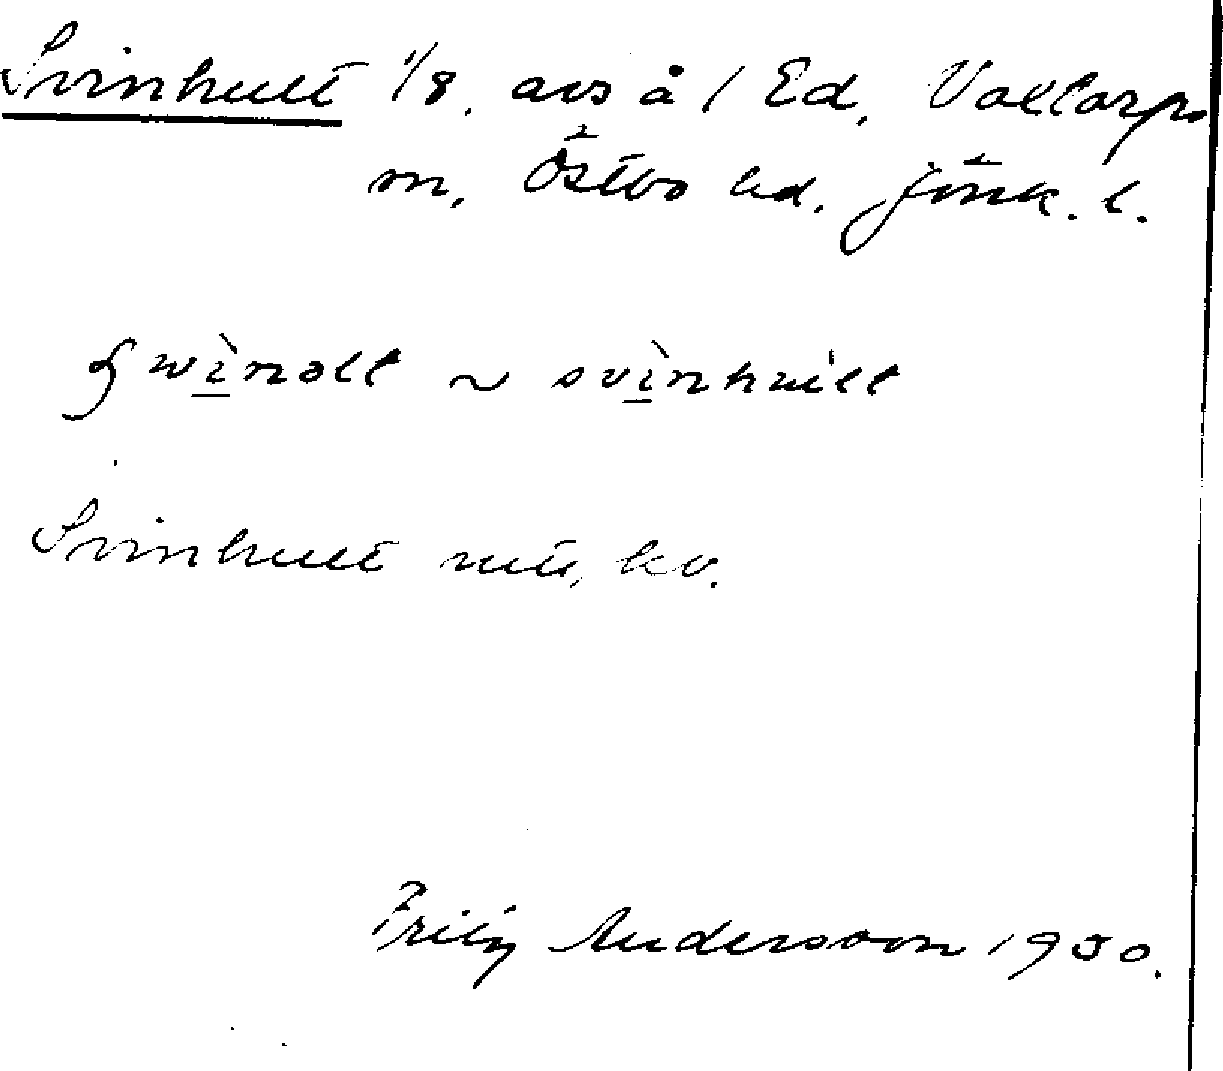 Svinhult 1/8. avs å 1 Ed, Valtorps
sn, Östbo hd. Jönk. l.
swìnəlt ~ svìnhult
Svinhult kv.
Andersson 1950.